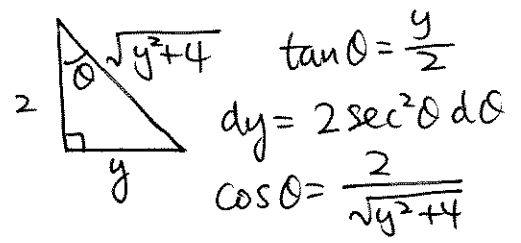 √(y²+4)
θ
2
y
tanθ = y/2
dy = 2sec²θ dθ
cosθ = 2/√(y²+4)